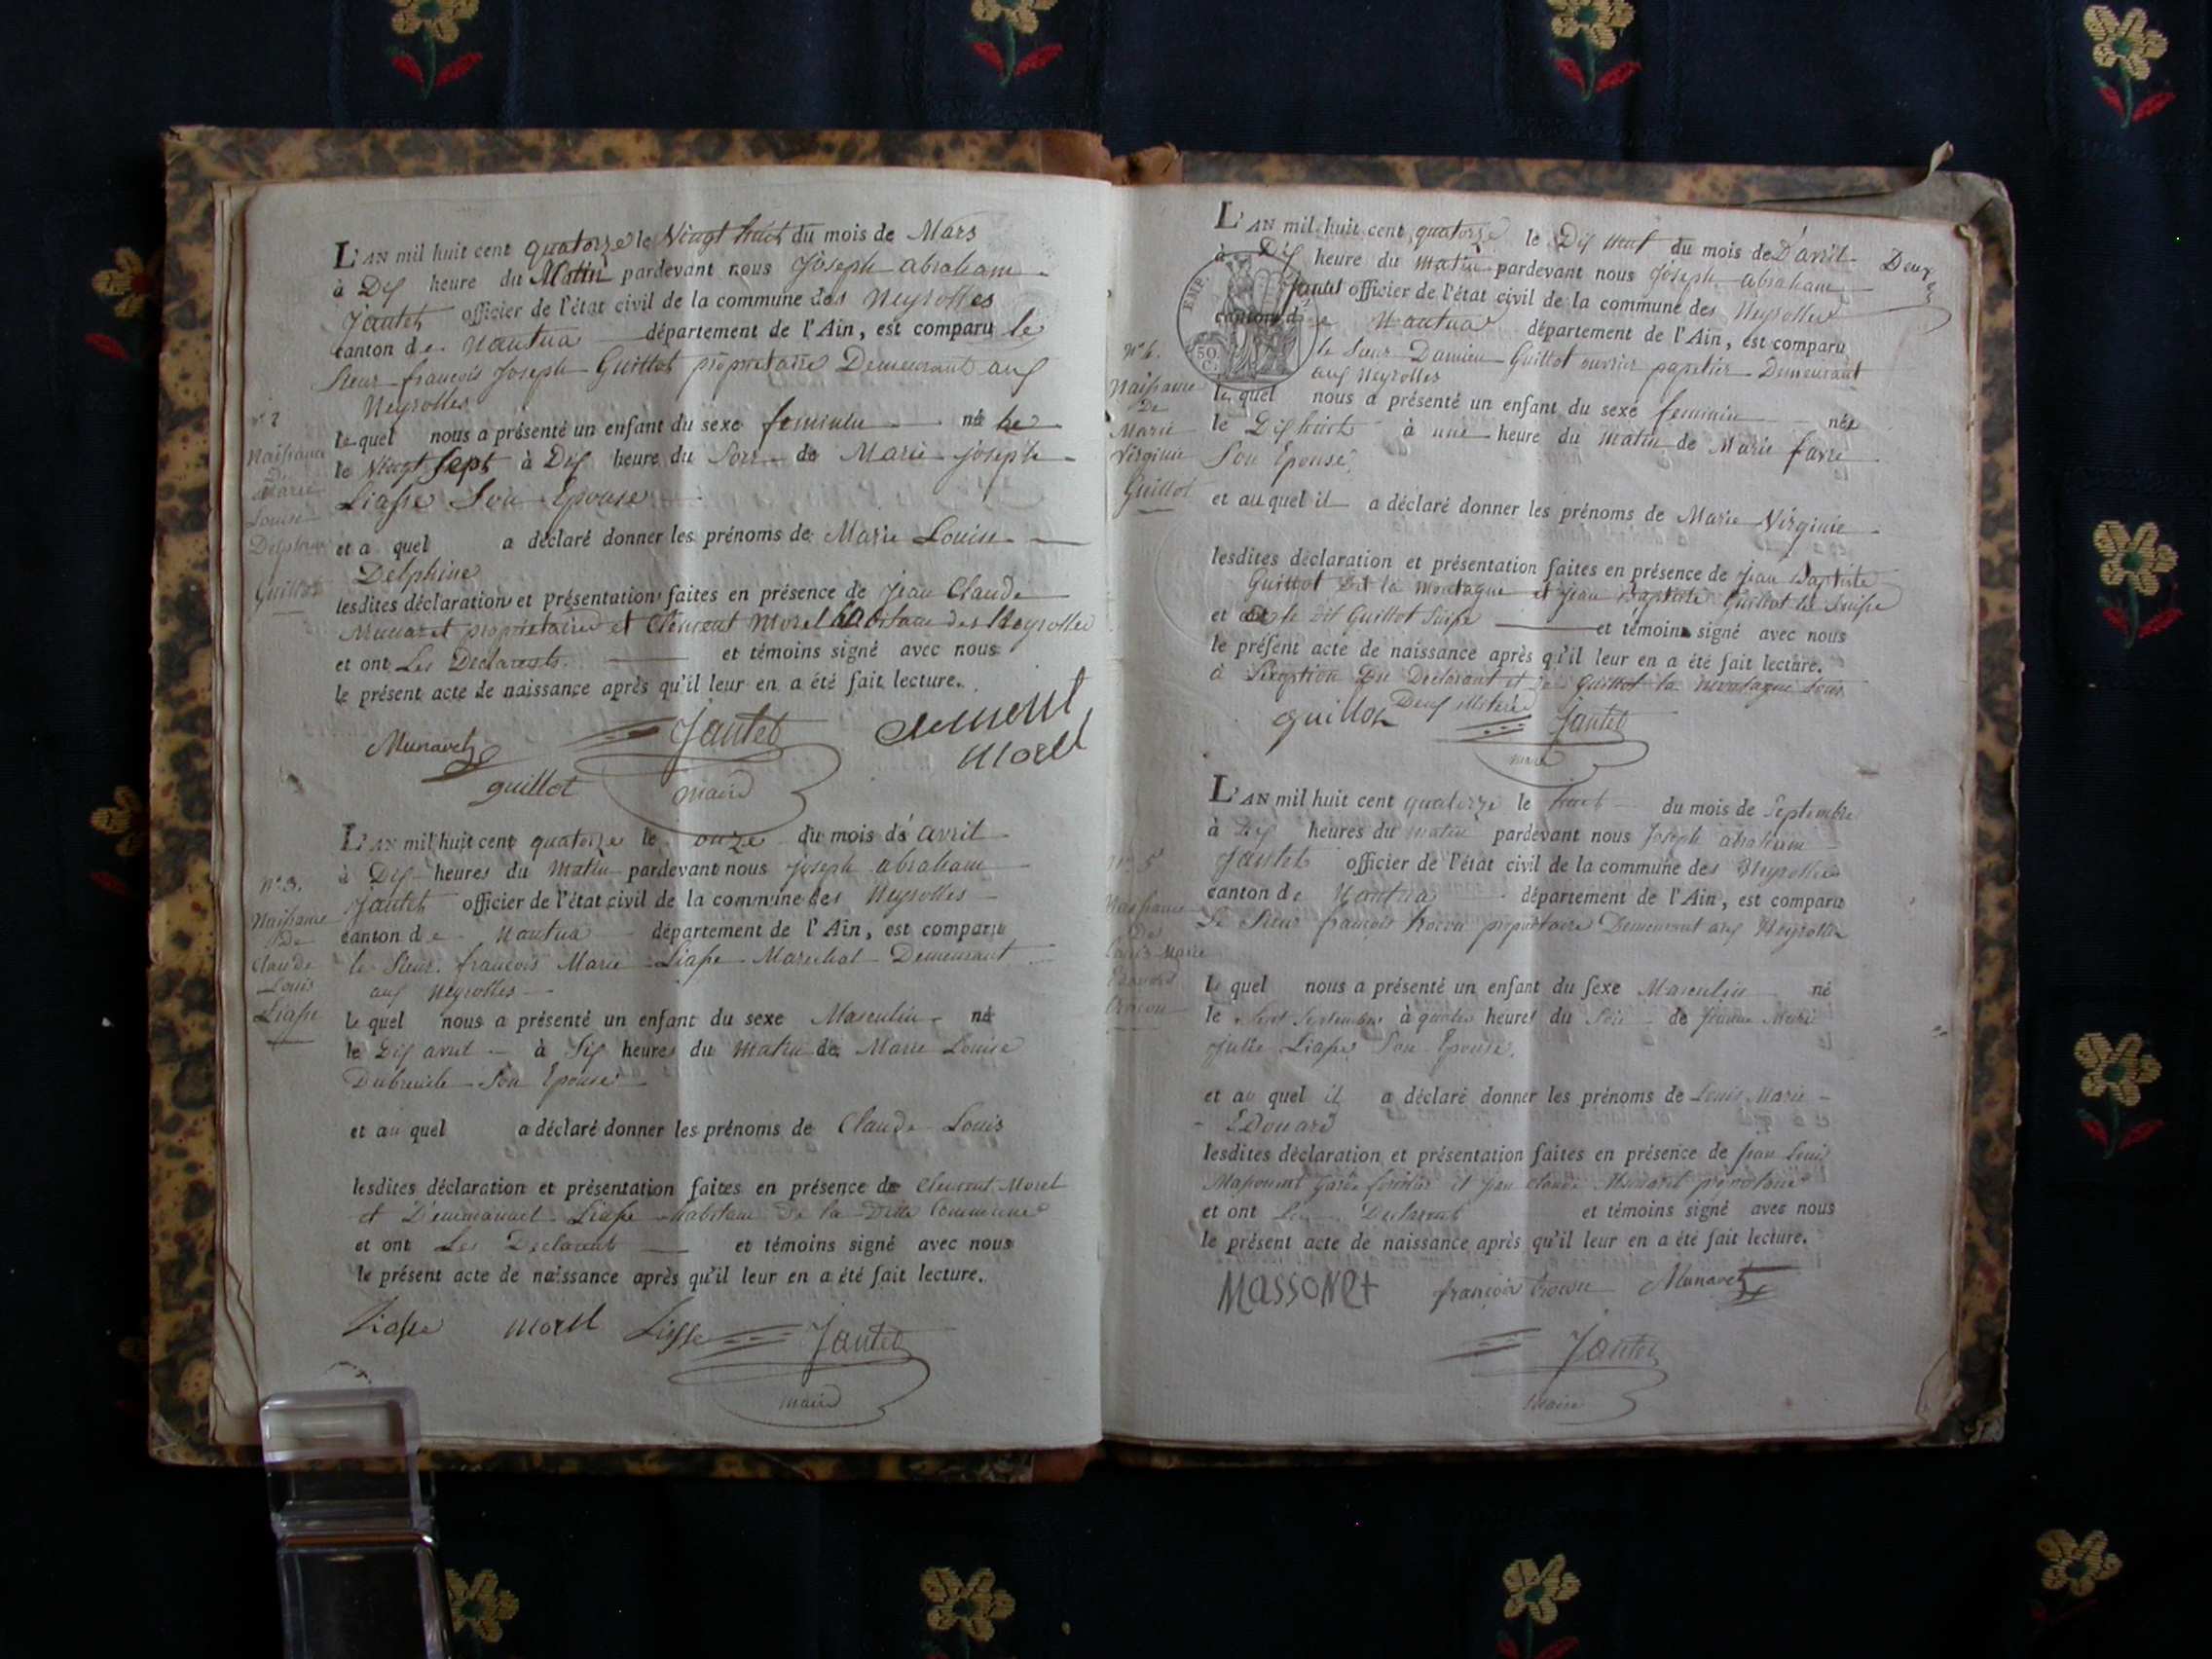 L'AN mil huit cent quatorze le Vingt huit du mois de Mars
à Dix heure du Matin pardevant nous Joseph abraham
Jautet officier de l'état civil de la commune des Neyrolles
canton de Nantua département de l'Ain, est comparu le
Sieur françois Joseph Guillot propriétaire Demeurant aux
Neyrolles
lequel nous a présenté un enfant du sexe feminin née
le Vingt Sept à Dix heure du Soir de Marie joseph
Liasse Son Epouse
et a quel a déclaré donner les prénoms de Marie Louise
Delphine
lesdites déclaration et présentation faites en présence de Jean Claude
Munaret propriétaire et Clement Morel habitans des Neyrolles
et ont Les Declarants et témoins signé avec nous
le présent acte de naissance après qu'il leur en a été fait lecture.
Munaret Jautet clement
morel
guillot maire
N° 2
Naissance
De
Marie
Louise
Delphine
Guillot
L'AN mil huit cent quatorze le onze du mois de avril
à Dix heures du matin pardevant nous Joseph abraham
Jautet officier de l'état civil de la commune des Neyrolles
canton de Nantua département de l'Ain, est comparu
le Sieur françois Marie Liasse Marechal Demeurant
aux Neyrolles
lequel nous a présenté un enfant du sexe Masculin né
le Dix avril à Six heures du matin de Marie Louise
Dubreuile Son Epouse
et au quel a déclaré donner les prénoms de Claude Louis
lesdites déclaration et présentation faites en présence de Clement Morel
et D'emmanuel Liasse habitans de la Ditte Commune
et ont Les Declarant et témoins signé avec nous
le présent acte de naissance après qu'il leur en a été fait lecture.
Liasse morel Liasse Jautet
maire
N° 3.
Naissance
De
Claude
Louis
Liasse
L'AN mil huit cent quatorze le Dix neuf du mois de D'avril
Deux
à Dix heure du matin pardevant nous Joseph abraham
Jautet officier de l'état civil de la commune des Neyrolles
canton de Nantua département de l'Ain, est comparu
le Sieur Damien Guillot ouvrier papetier Demeurant
aux Neyrolles
le quel nous a présenté un enfant du sexe feminin née
le Dix huit à une heure du matin de Marie favre
Son Epouse
et au quel il a déclaré donner les prénoms de Marie Virginie
lesdites déclaration et présentation faites en présence de Jean Baptiste
Guillot Dit la montagne et Jean Baptiste Guillot dit Suisse
et ont le dit Guillot Suisse et témoins signé avec nous
le présent acte de naissance après qu'il leur en a été fait lecture.
à L'exeption Du Declarant et De Guillot la montagne tous
Deux illiterés
guillot Jautet
maire
EMP.
50.
C.
Naissance
De
Marie
Virginie
Guillot
L'AN mil huit cent quatorze le huit du mois de Septembre
à Dix heures du matin pardevant nous Joseph abraham
Jautet officier de l'état civil de la commune des Neyrolles
canton de Nantua département de l'Ain, est comparu
Le Sieur françois trocon propriétaire Demeurant aux Neyrolles
le quel nous a présenté un enfant du sexe Masculin né
le Sept Septembre à quatre heures du Soir de Jeanne Marie
Julie Liasse Son Epouse.
et au quel il a déclaré donner les prénoms de Louis Marie
Edouard
lesdites déclaration et présentation faites en présence de Jean Louis
Massonnet Garde forestier et Jean Claude Munaret propriétaire
et ont Les Declarant et témoins signé avec nous
le présent acte de naissance après qu'il leur en a été fait lecture.
MASSONET françois trocon Munaret
Jautet
maire
N° 5
Naissance
De
Louis Marie
Edouard
trocon